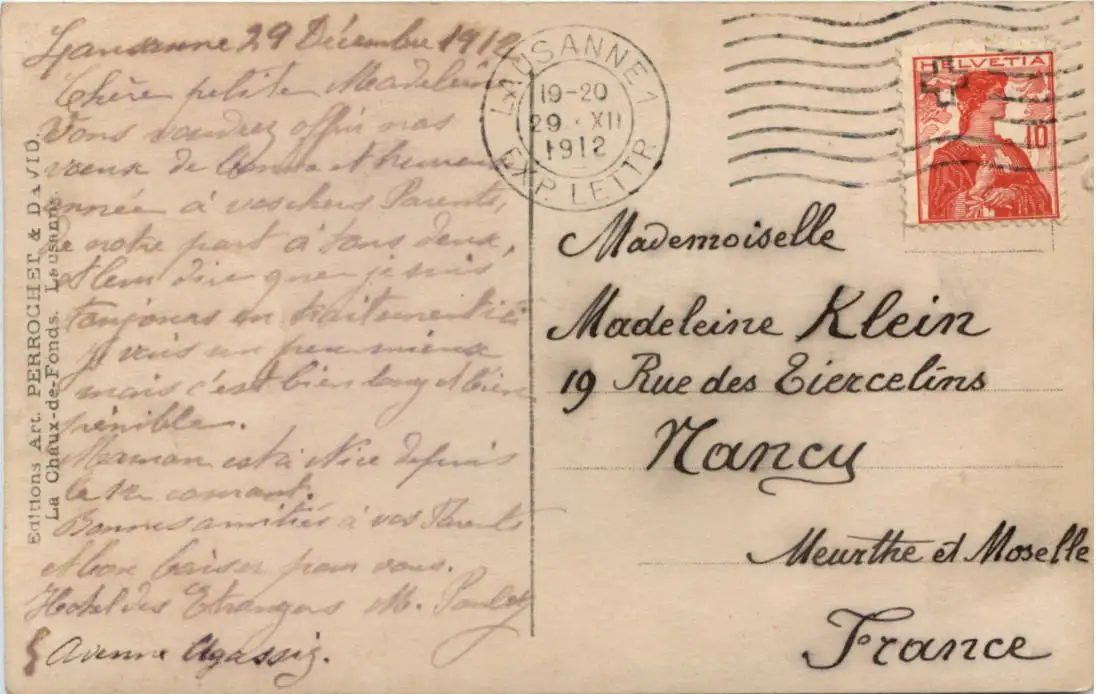 Lausanne 29 Décembre 1912
Chère petite Madeleine
Vous voudrez offrir nos
vœux de bonne et heureuse
année à vos chers Parents,
de notre part à tous deux,
et leur dire que je suis
toujours en traitement ici
je vais un peu mieux
mais c'est bien long et bien
pénible.
Maman est à Nice depuis
le 12 courant.
Bonnes amitiés à vos Parents
et bon baiser pour vous.
Hotel des Etrangers M.
5 Avenue Agassiz.
Editions Art. PERROCHET & DAVID.
La Chaux-de-Fonds. Lausanne.
LAUSANNE 1
19-20
29. XII
1912
EXP. LETTR.
HELVETIA
10
Mademoiselle
Madeleine Klein
19 Rue des Tiercelins
Nancy
Meurthe et Moselle
France